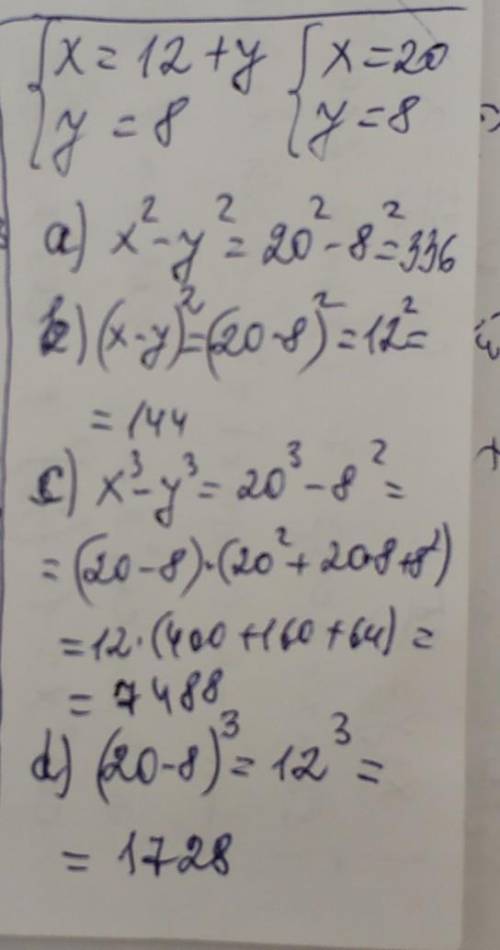 {x = 12 + y {x = 20
{y = 8 {y = 8
a) x² - y² = 20² - 8² = 336
b) (x - y)² = (20 - 8)² = 12² =
= 144
c) x³ - y³ = 20³ - 8² =
= (20 - 8)·(20² + 20·8 + 8²)
= 12·(400 + 160 + 64) =
= 7488
d) (20 - 8)³ = 12³ =
= 1728